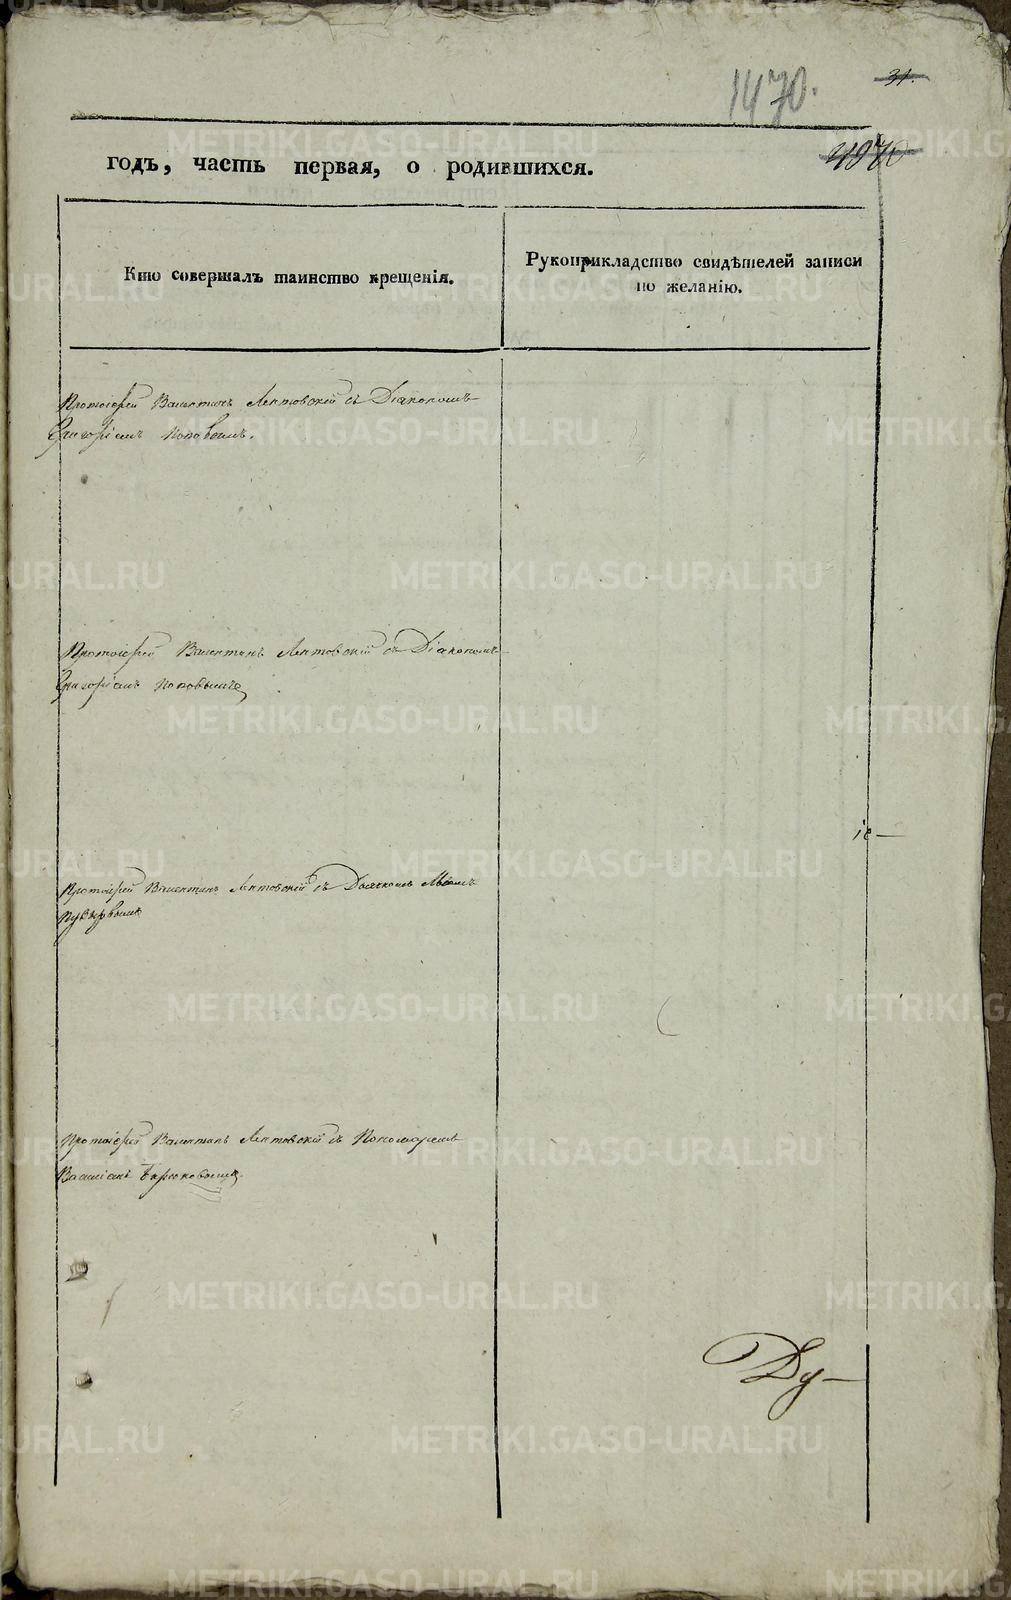 1470.
31.
годъ, часть первая, о родившихся.
Кто совершалъ таинство крещенія.
Рукоприкладство свидѣтелей записи
по желанію.
Протоіерей Валентинъ Лептовскій съ Діакономъ
Григоріемъ Поповымъ.
Протоіерей Валентинъ Лептовскій съ Діакономъ
Григоріемъ Поповымъ
іе
Протоіерей Валентинъ Лептовскій съ Дьячкомъ
Протоіерей Валентинъ Лептовскій съ Пономаремъ
Василіемъ Бирюковымъ.
Ду
METRIKI.GASO-URAL.RU